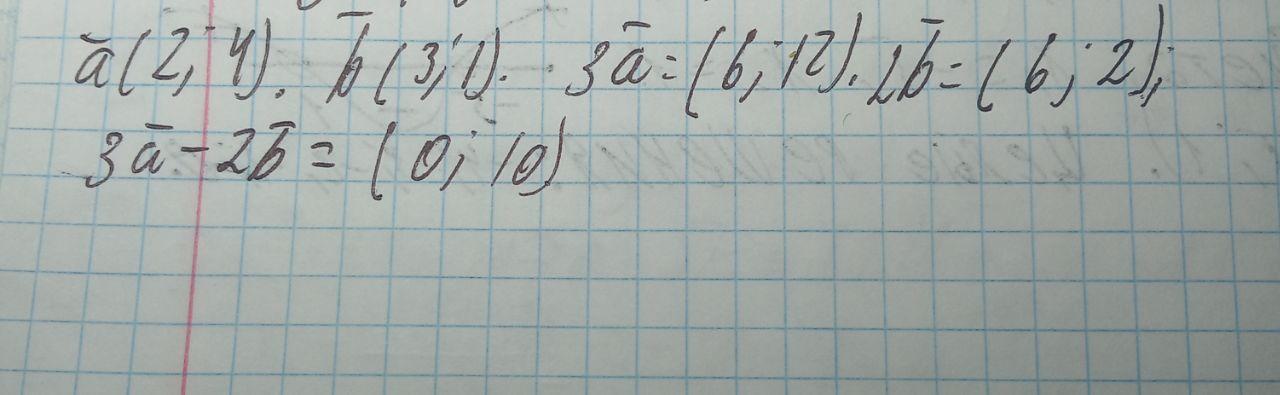 ā(2; 4). b̄(3; 1). 3ā = (6; 12). 2b̄ = (6; 2);
3ā - 2b̄ = (0; 10)